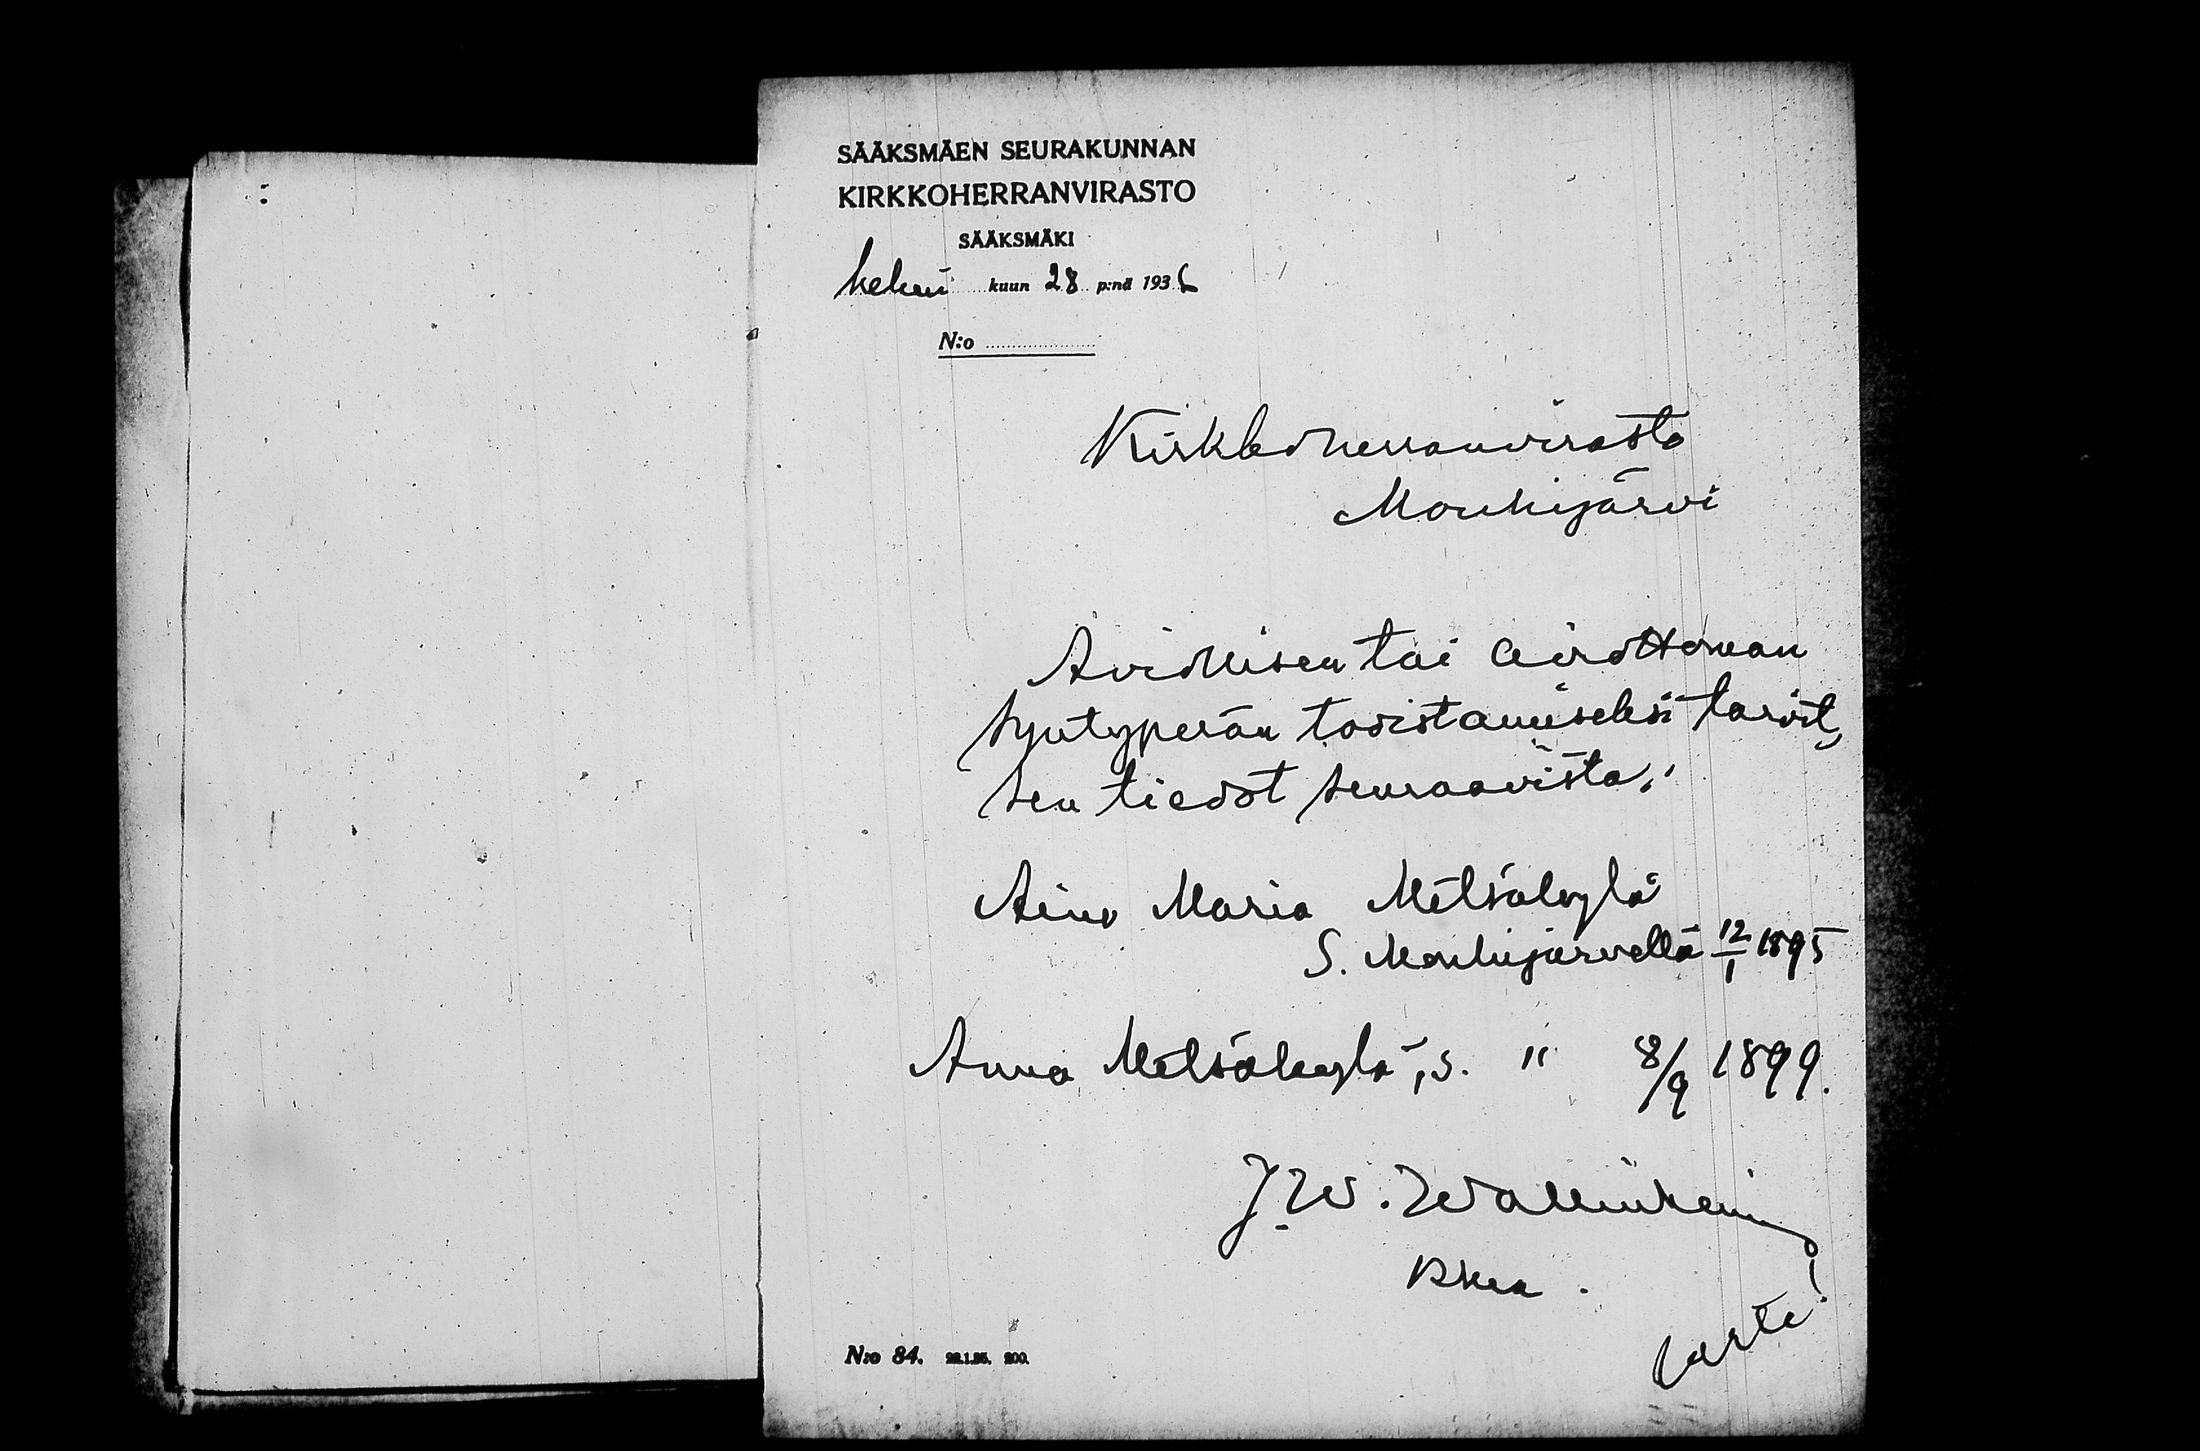 SÄÄKSMÄEN SEURAKUNNAN
KIRKKOHERRANVIRASTO
SÄÄKSMÄKI
helmi kuun 28 p:nä 1936
N:o
Kirkkoherranvirasto
Mouhijärvi
Aviollisen tai aviottoman
syntyperän toteamiseksi tarvit-
sen tiedot seuraavista:
Aino Maria Metsäkylä
S. Mouhijärvellä 12/1 1895
Anna Metsäkylä, s. " 8/9 1899.
J. W. Wallinheimo
Kkra.
N:o 84. 22.1.35. 200.